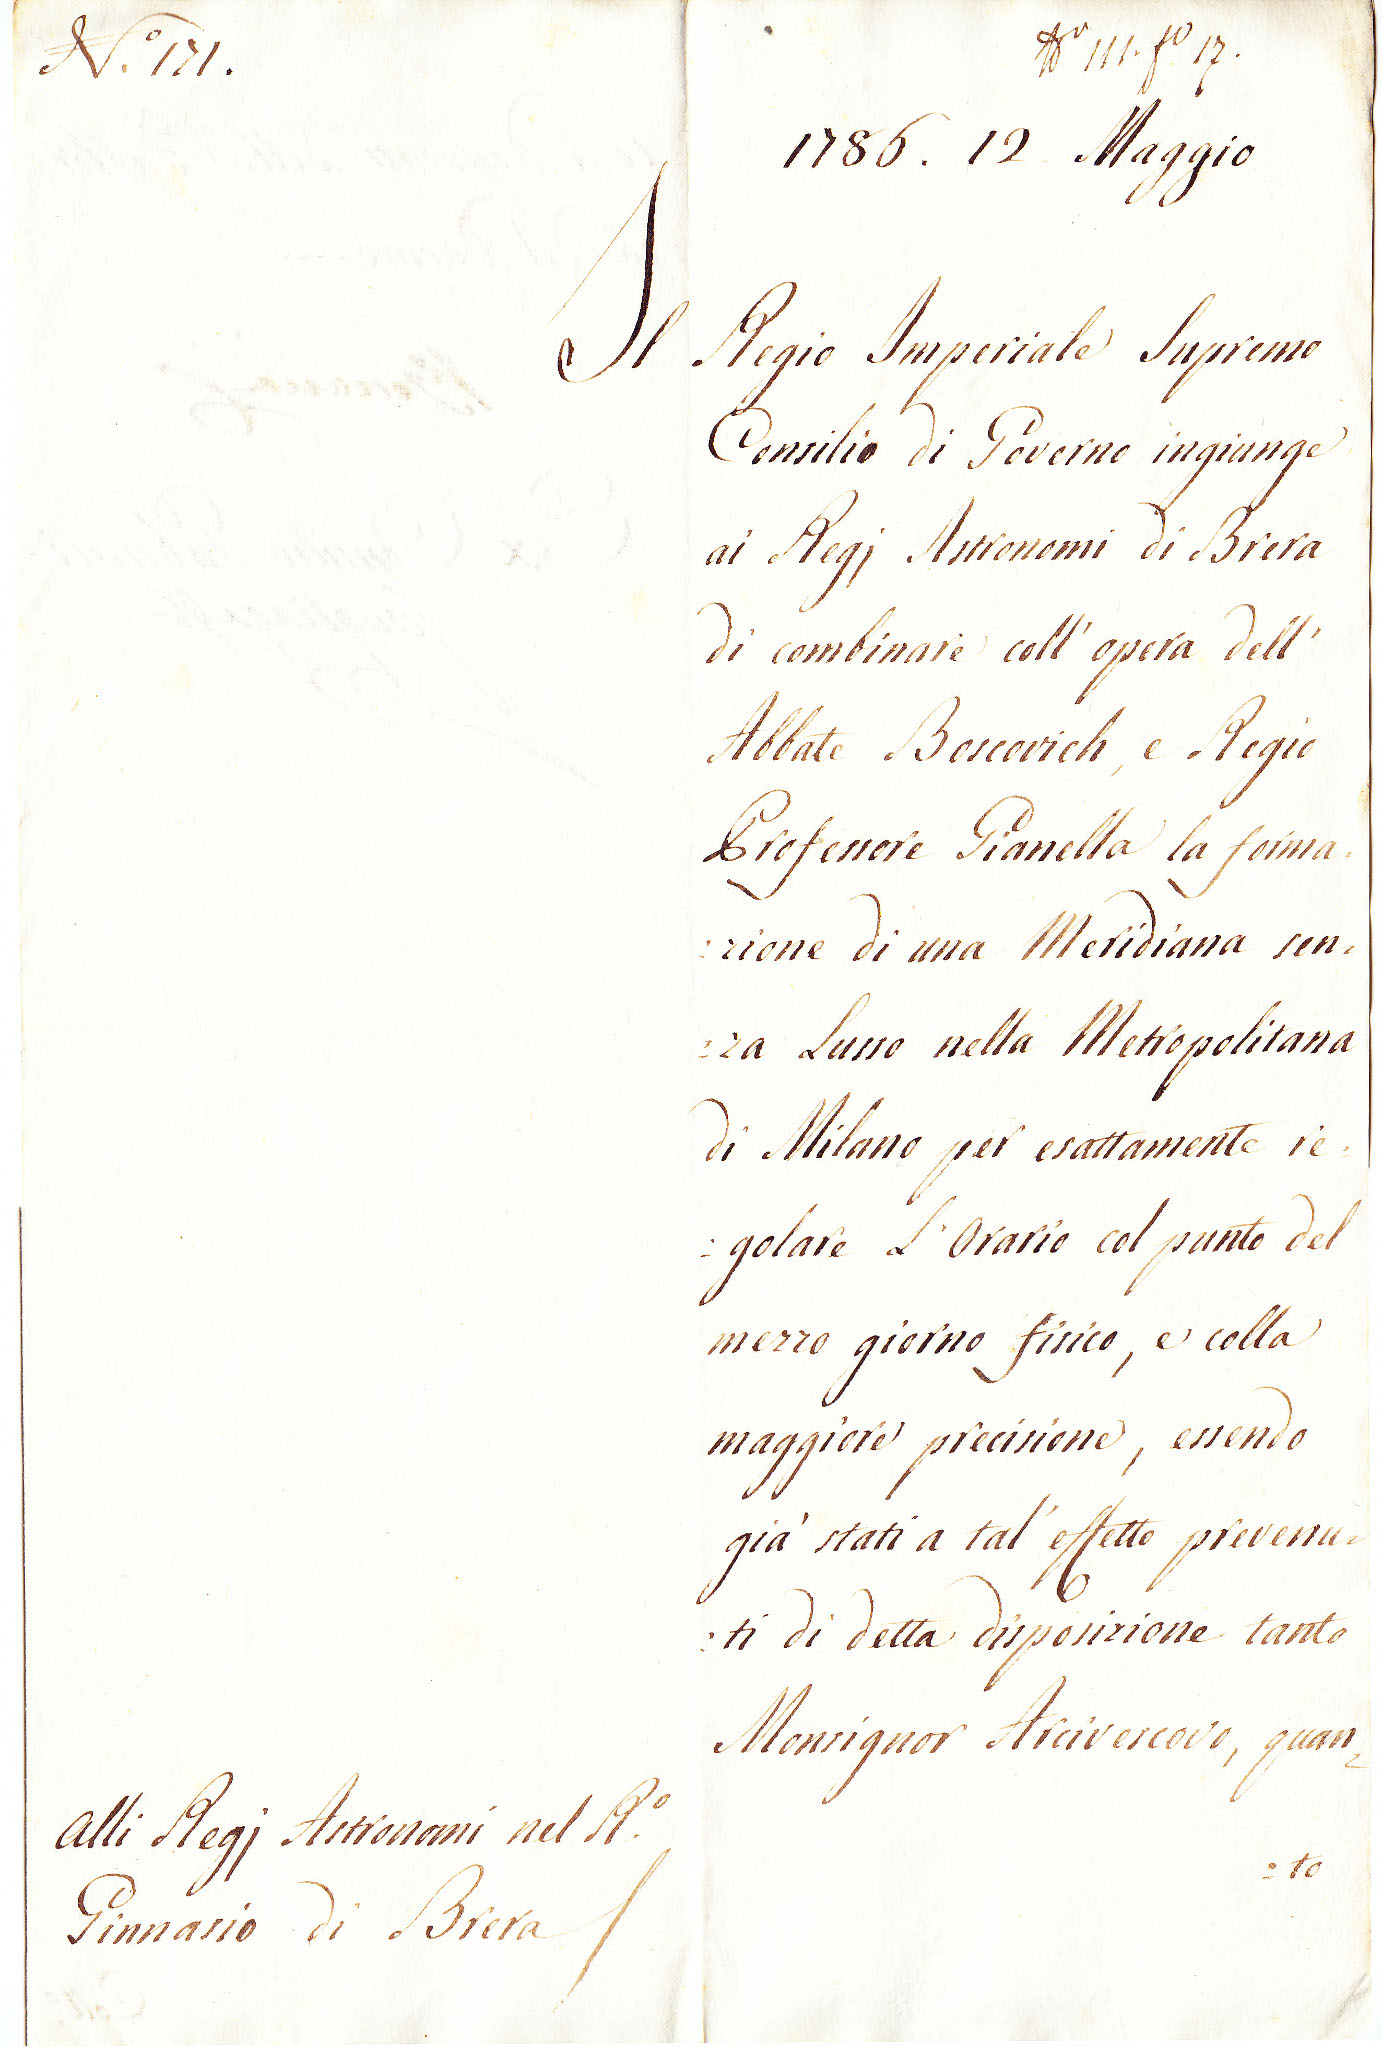 N.º 171.
IIIº fº 17.
1786. 12 Maggio
Il Regio Imperiale Supremo
Consilio di Governo ingiunge
ai Regj Astronomi di Brera
di combinare coll' opera dell'
Abbate Boscovich, e Regio
Professore Pianella la forma=
=zione di una Meridiana sen=
=za Lusso nella Metropolitana
di Milano per esattamente re=
=golare L'Orario col punto del
mezzo giorno fisico, e colla
maggiore precisione, essendo
già stati a tal' effetto prevenu=
=ti di detta disposizione tanto
Monsignor Arcivescovo, quan=
=to
alli Regj Astronomi nel R.º
Ginnasio di Brera